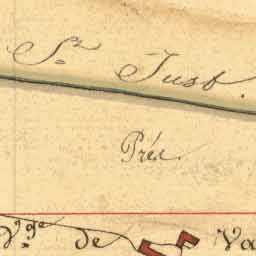 St. Just.
Prés.
Vge. de Va